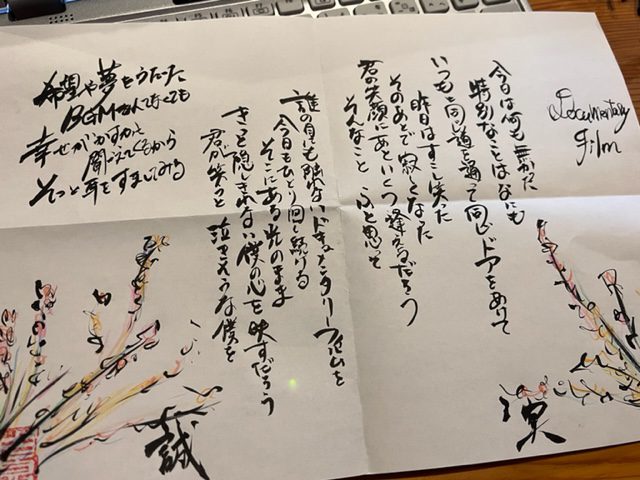 Documentary
Film
今日は何も無かった
特別なことはなにも
いつもと同じ道を通って同じドアをあけて
昨日はすこし笑った
そのあとで寂しくなった
君の笑顔にあといくつ逢えるだろう
そんなこと ふと思って
誰の目にも触れないドキュメンタリーフィルムを
今日もひとり回し続ける
そこにある光のまま
きっと隠しきれない僕の心を映すだろう
君が笑うと 泣きそうな僕を
希望や夢をうたった
BGMなんてなくても
幸せがかすかに
聞こえてくるから
そっと耳をすましてみる
誠